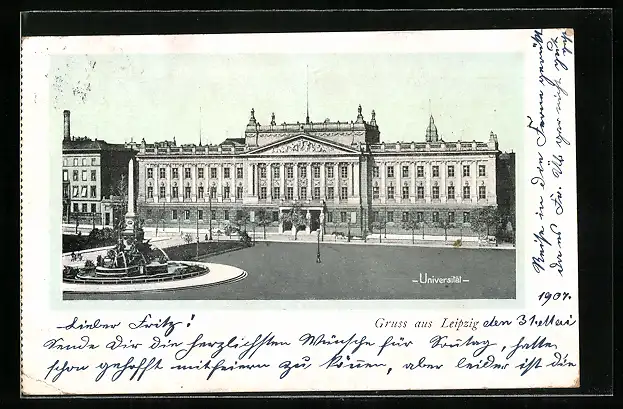 - Universität -
Gruss aus Leipzig den 31. Mai
1907.
Lieber Fritz!
Sende Dir die herzlichsten Wünsche für Sonntag, hatte
schon gehofft mitfeiern zu können, aber leider ist die
Reise in der Ferne gerückt